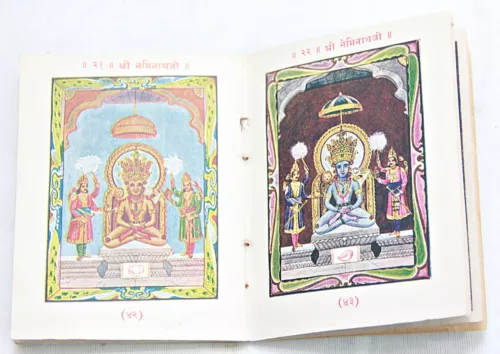 ॥ २१ ॥ श्री नमिनाथजी ॥
(४२)
॥ २२ ॥ श्री नेमिनाथजी ॥
(४३)